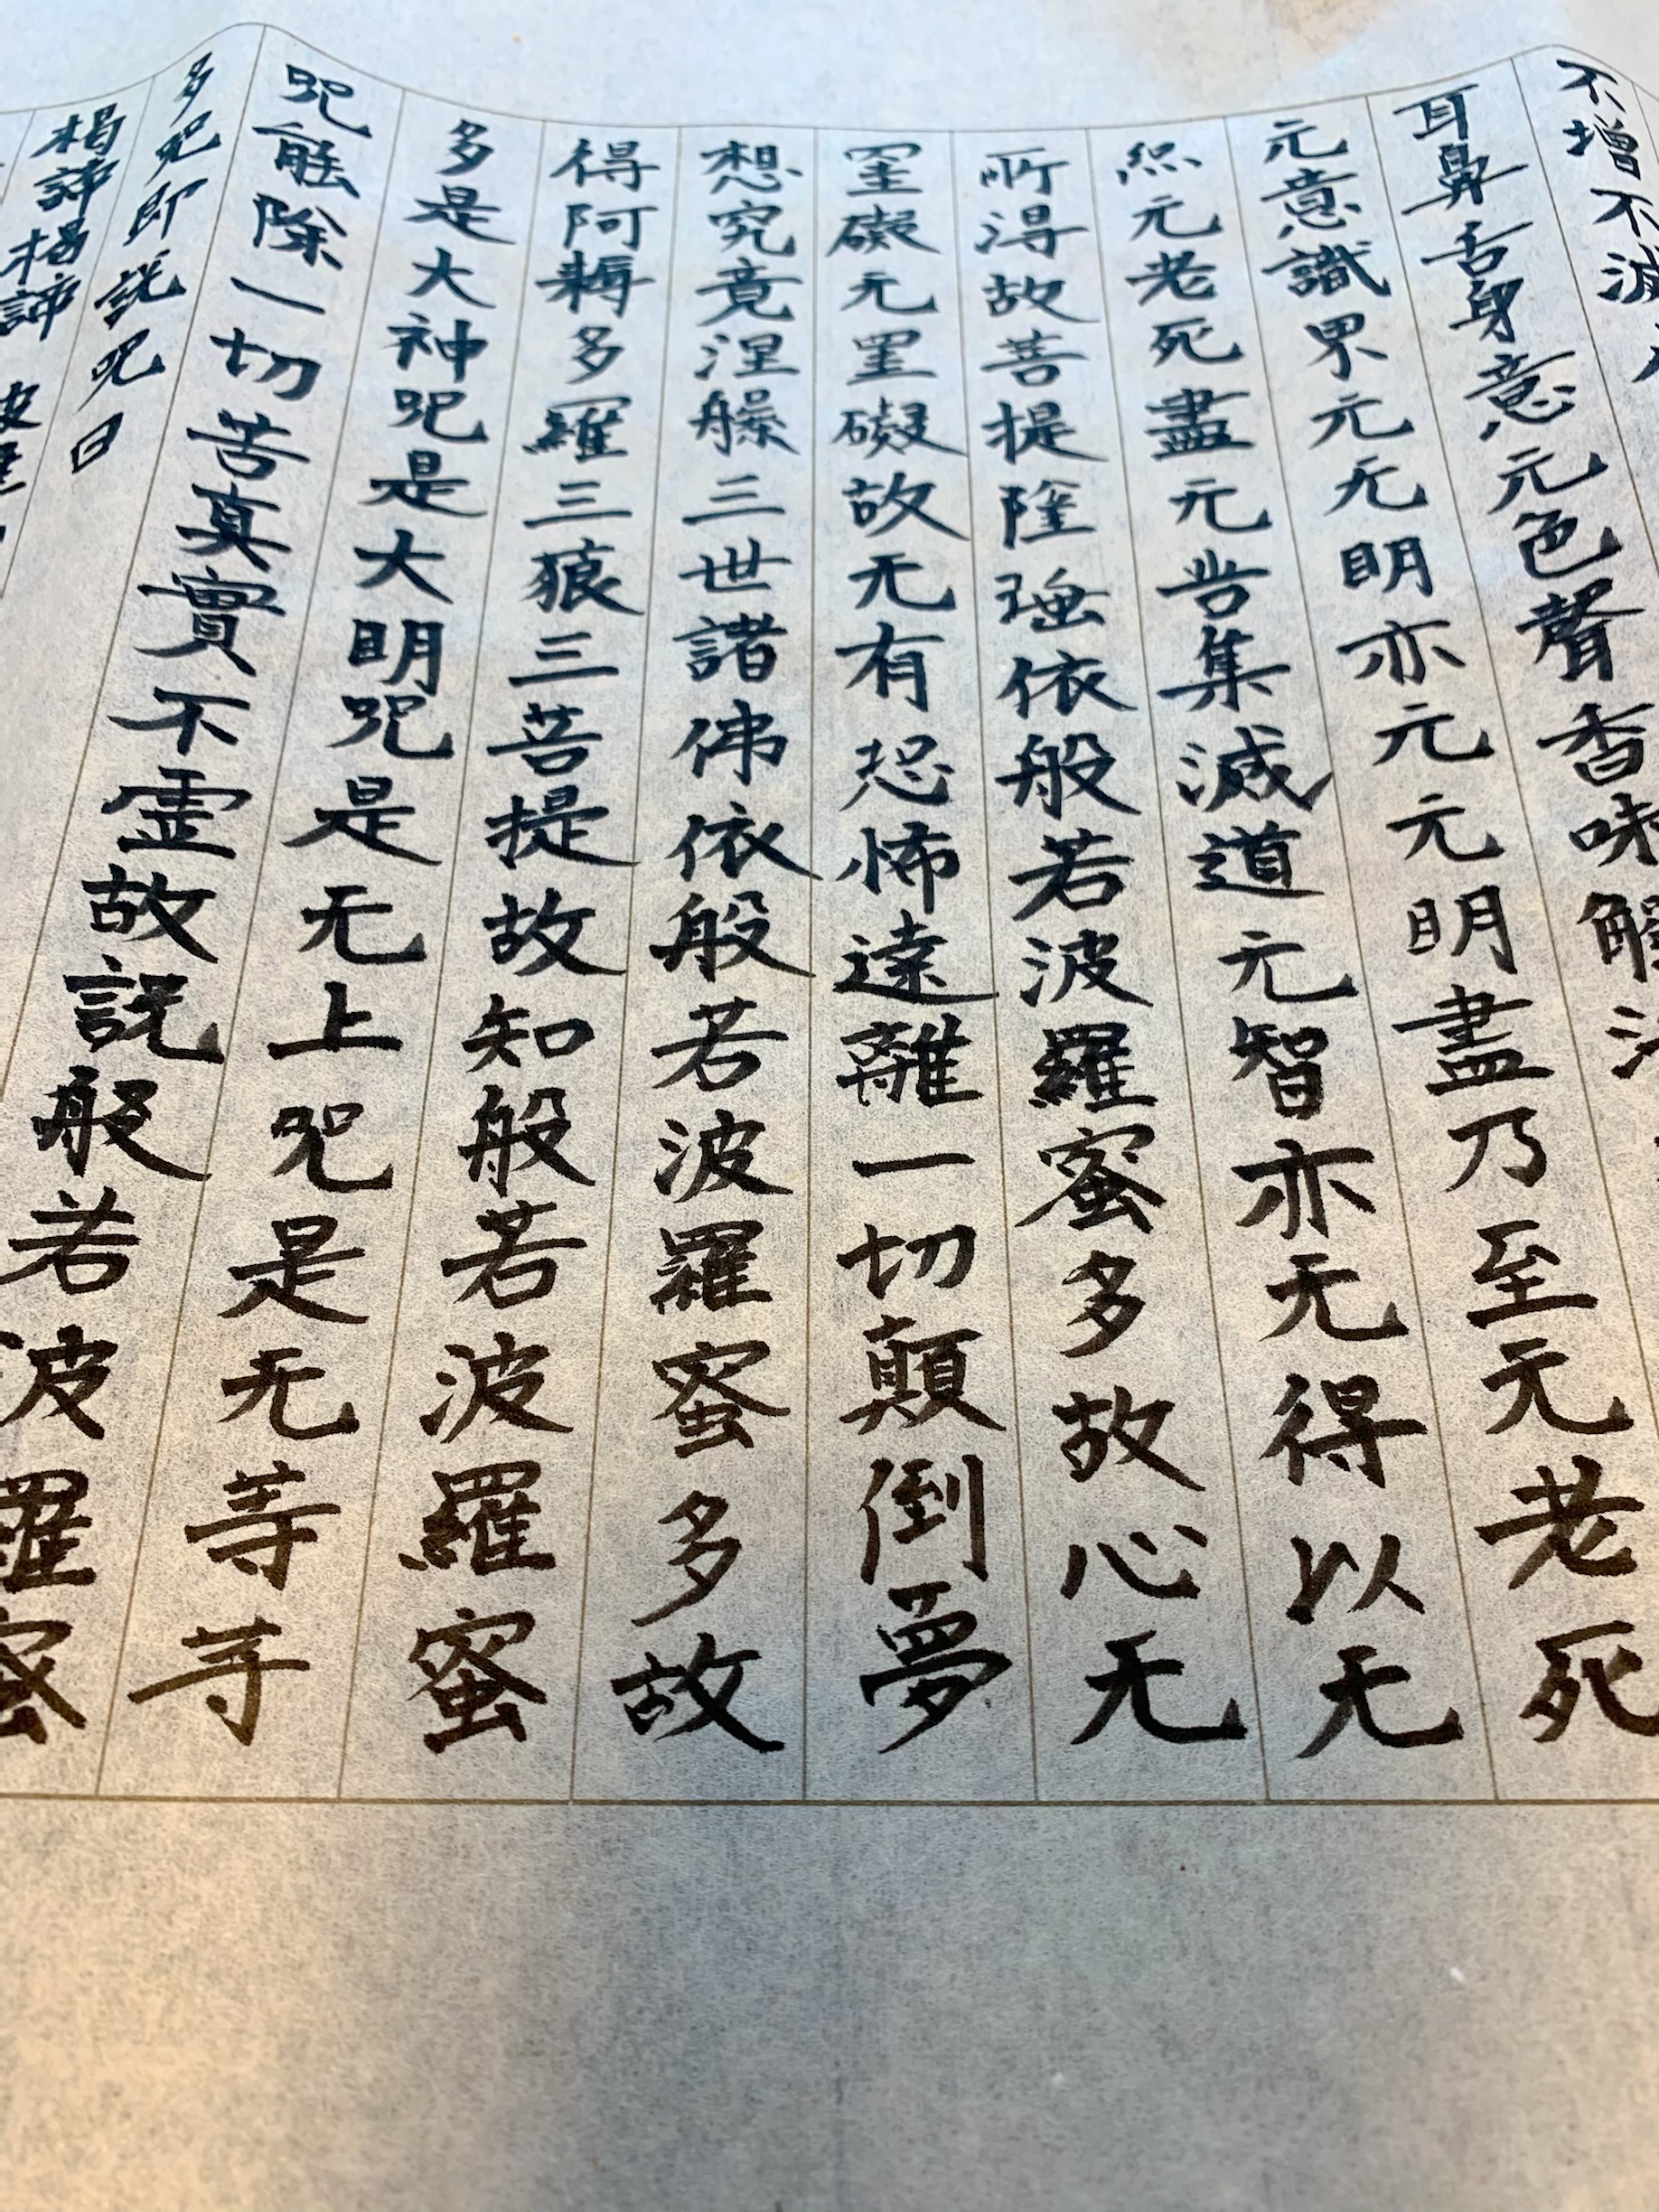 不增不減
耳鼻舌身意无色聲香味觸法
无意識界无无明亦无无明盡乃至无老死
亦无老死盡无苦集滅道无智亦无得以无
所得故菩提薩埵依般若波羅蜜多故心无
罣礙无罣礙故无有恐怖遠離一切顛倒夢
想究竟涅槃三世諸佛依般若波羅蜜多故
得阿耨多羅三藐三菩提故知般若波羅蜜
多是大神咒是大明咒是无上咒是无等等
咒能除一切苦真實不虛故説般若波羅蜜
多咒即説咒曰
揭諦揭諦 波羅